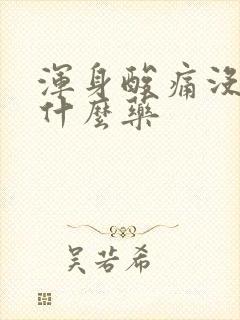 渾身酸痛沒
什麼藥
吳若希